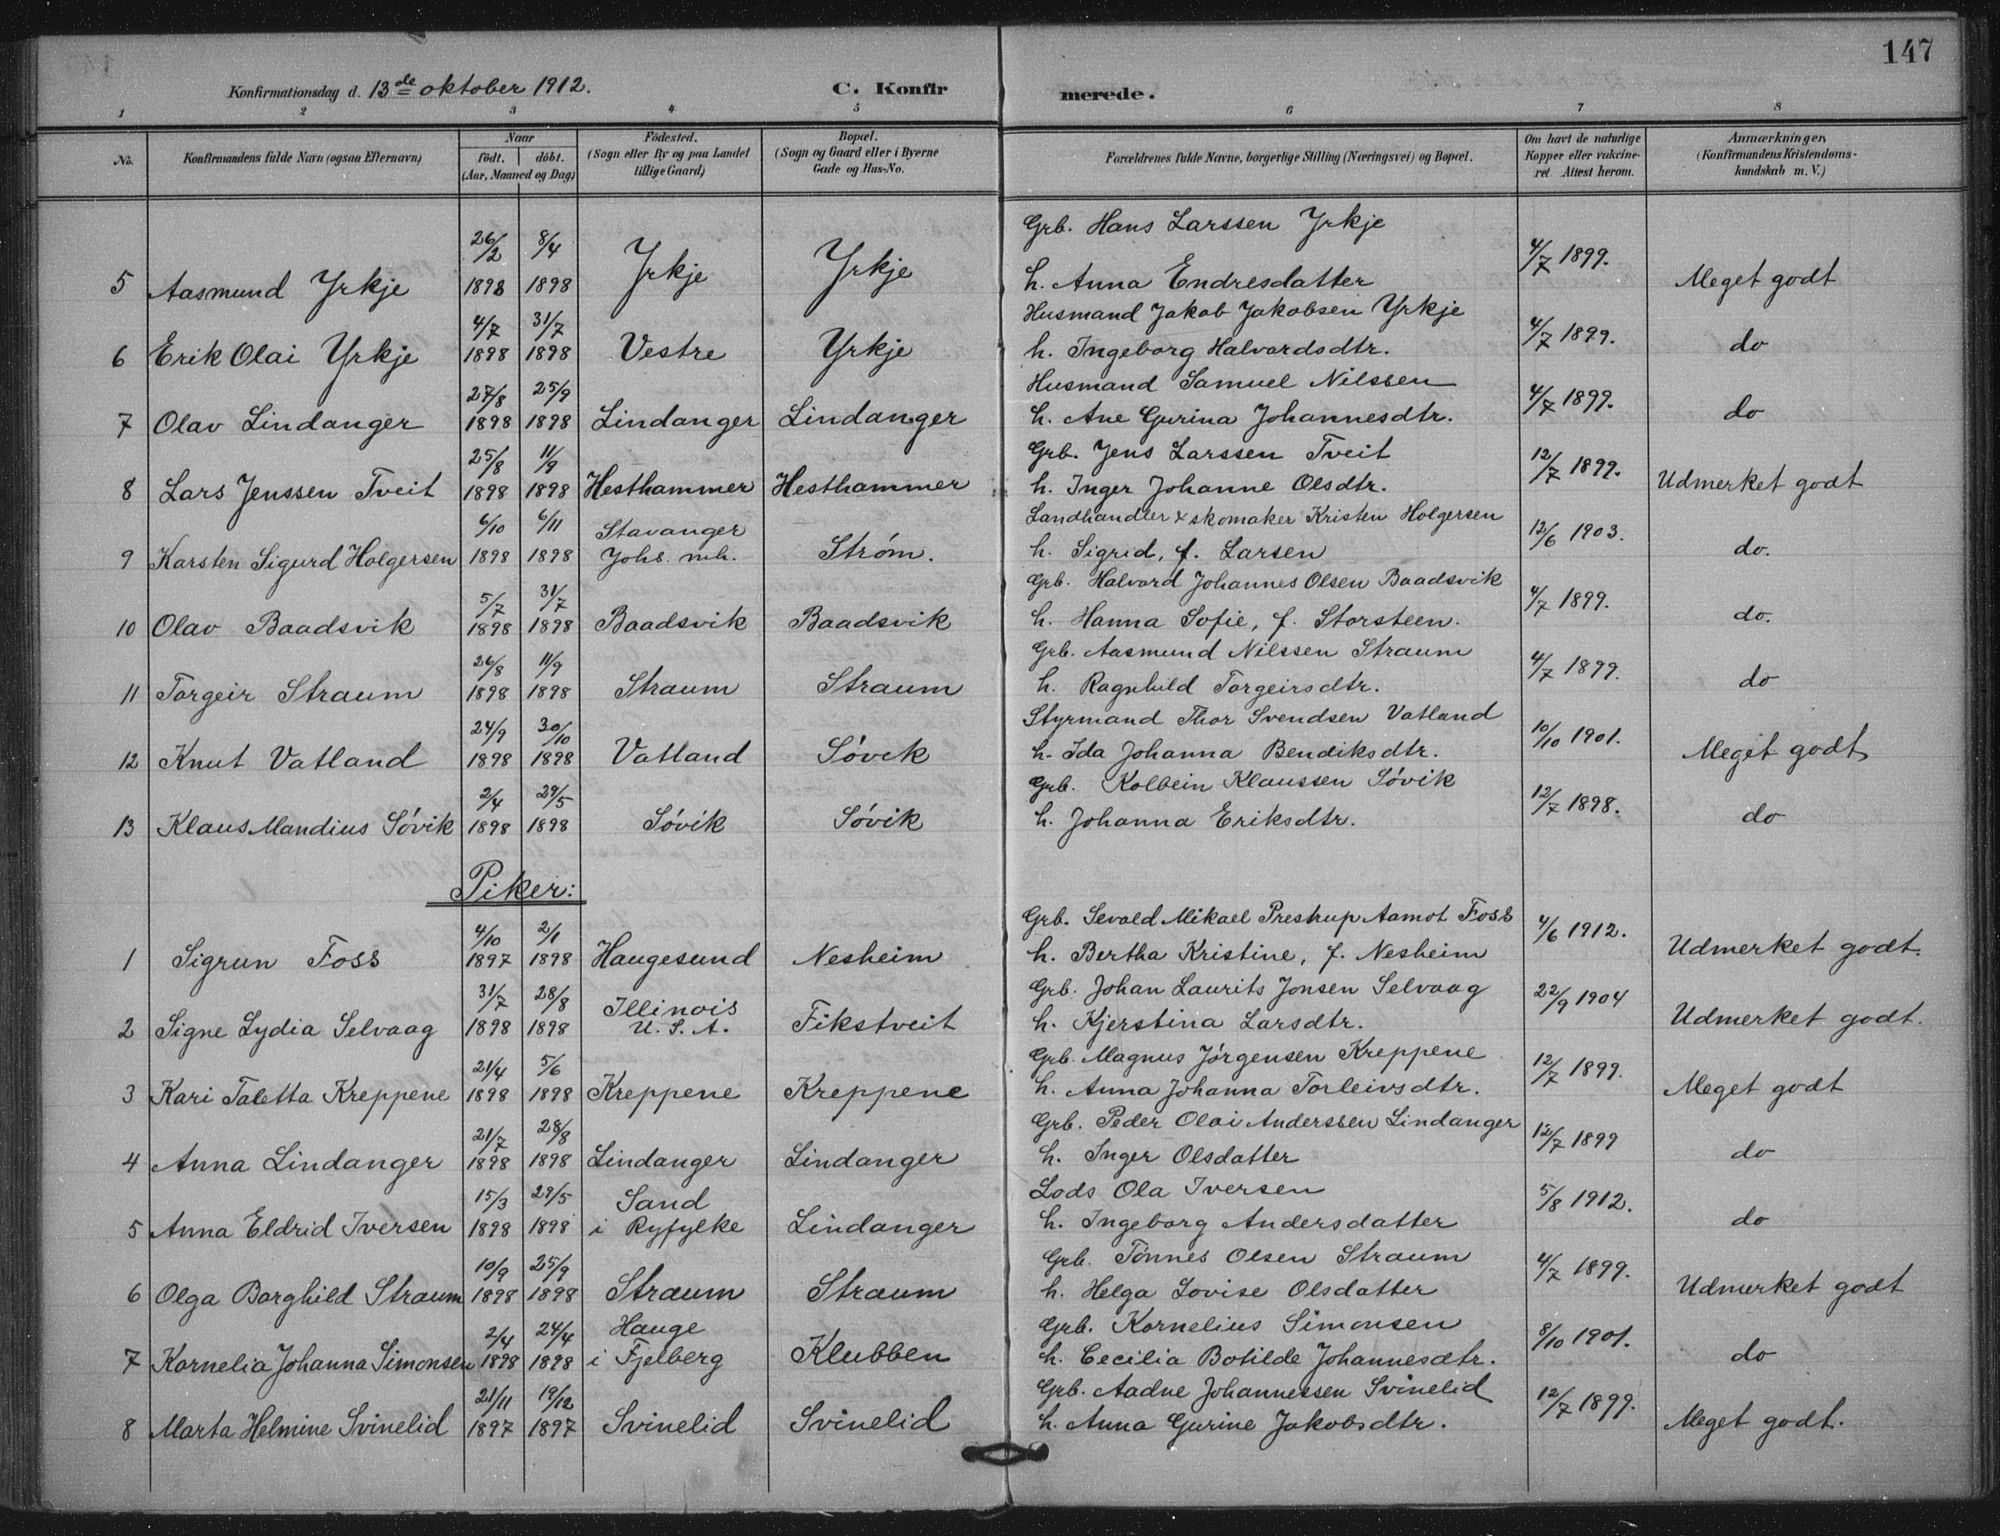 147
Konfirmationsdag d. 13de oktober 1912. C. Konfirmerede.
1 2 3 4 5 6 7 8
No. Konfirmandens fulde Navn (ogsaa Efternavn) Naar födt. döbt. (Aar, Maaned og Dag) Födested. (Sogn eller By og paa Landet tillige Gaard) Bopæl. (Sogn og Gaard eller i Byerne Gade og Hus-No. Forældrenes fulde Navne, borgerlige Stilling (Næringsvei) og Bopæl. Om havt de naturlige Kopper eller vakcineret. Attest herom. Anmærkninger, (Konfirmandens Kristendomskundskab m. V.)
5 Aasmund Yrkje 26/2 1898 8/4 1898 Yrkje Yrkje Grb. Hans Larssen Yrkje h. Anna Endresdatter 4/7 1899. Meget godt
6 Erik Olai Yrkje 4/7 1898 31/7 1898 Vestre Yrkje Husmand Jakob Jakobsen Yrkje h. Ingeborg Halvardsdtr. 4/7 1899. do
7 Olav Lindanger 27/8 1898 25/9 1898 Lindanger Lindanger Husmand Samuel Nilssen h. Ane Gurina Johannesdtr. 4/7 1899. do
8 Lars Jenssen Tveit 25/8 1898 11/9 1898 Hesthammer Hesthammer Grb. Jens Larssen Tveit h. Inger Johanne Olsdtr. 12/7 1899. Udmerket godt
9 Karsten Sigurd Holgersen 6/10 1898 6/11 1898 Stavanger Johs. mh. Strøm. Landhandler & skomaker Kristen Holgersen h. Sigrid, f. Larsen 12/6 1903. do.
10 Olav Baadsvik 5/7 1898 31/7 1898 Baadsvik Baadsvik Grb. Halvard Johannes Olsen Baadsvik h. Hanna Sofie, f. Storsteen. 4/7 1899. do.
11 Torgeir Straum 26/8 1898 11/9 1898 Straum Straum Grb. Aasmund Nilssen Straum h. Ragnhild Torgeirsdtr. 4/7 1899. do
12 Knut Vatland 24/9 1898 30/10 1898 Vatland Sövik Styrmand Thor Svendsen Vatland h. Ida Johanna Bendiksdtr. 10/10 1901. Meget godt
13 Klaus Mandius Sövik 2/4 1898 29/5 1898 Sövik Sövik Grb. Kolbein Klaussen Sövik h. Johanna Eriksdtr. 12/7 1898. do
Piker:
1 Sigrun Foss 4/10 1897 2/1 1898 Haugesund Nesheim Grb. Sevald Mikael Prestrup Aamot Foss h. Bertha Kristine, f. Nesheim 4/6 1912. Udmerket godt.
2 Signe Lydia Selvaag 31/7 1898 28/8 1898 Illinois U. S. A. Fikstveit Grb. Johan Laurits Jonsen Selvaag h. Kjerstina Larsdtr. 22/9 1904 Udmerket godt.
3 Kari Taletta Kreppene 21/4 1898 5/6 1898 Kreppene Kreppene Grb. Magnus Jörgensen Kreppene h. Anna Johanna Torleivsdtr. 12/7 1899. Meget godt
4 Anna Lindanger 21/7 1898 28/8 1898 Lindanger Lindanger Grb. Peder Olai Anderssen Lindanger h. Inger Olsdatter 12/7 1899 do
5 Anna Eldrid Iversen 15/3 1898 29/5 1898 Sand i Ryfylke Lindanger Lods Ola Iversen h. Ingeborg Andersdatter 5/8 1912. do
6 Olga Borghild Straum 10/9 1898 25/9 1898 Straum Straum Grb. Tönnes Olsen Straum h. Helga Lovise Olsdatter 4/7 1899. Udmerket godt
7 Kornelia Johanna Simonsen 2/4 1898 24/4 1898 Hauge i Fjelberg Klubben Grb. Kornelius Simonsen h. Cecilia Botilde Johannesdtr. 8/10 1901. do
8 Marta Helmine Svinelid 21/11 1897 19/12 1897 Svinelid Svinelid Grb. Aadne Johannessen Svinelid h. Anna Gurine Jakobsdtr. 12/7 1899. Meget godt.